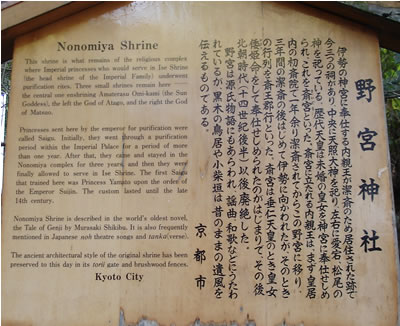 Nonomiya Shrine
This shrine is what remains of the religious complex
where Imperial princesses who would serve in Ise Shrine
(the head shrine of the Imperial Family) underwent
purification rites. Three small shrines remain here —
the central one enshrining Amaterasu Omi-kami (the Sun
Goddess), the left the God of Atago, and the right the God
of Matsuo.
Princesses sent here by the emperor for purification were
called Saigu. Initially, they went through a purification
period within the Imperial Palace for a period of more
than one year. After that, they came and stayed in the
Nonomiya complex for three years, and then they were
finally allowed to serve in Ise Shrine. The first Saigu
that trained here was Princess Yamato upon the order of
the Emperor Suijin. The custom lasted until the late
14th century.
Nonomiya Shrine is described in the world's oldest novel,
the Tale of Genji by Murasaki Shikibu. It is also frequently
mentioned in Japanese noh theatre songs and tanka (verse).
The ancient architectural style of the original shrine has been
preserved to this day in its torii gate and brushwood fences.
Kyoto City
野宮神社
伊勢の神宮に奉仕する内親王が潔斎のため居住された跡で
今三つの祠があり、中央に天照大神を祀り、左右に愛宕、松尾の
神を祀っている。歴代天皇は未婚の皇女を神宮に奉仕せしめ
られ、これを斎宮といった。斎宮に立たれる内親王は、まず皇居
内の初斎院で一年余り潔斎されてからこの野宮に移り、
三年間の潔斎の後はじめて伊勢に向かわれたが、そのとき
の行列を斎王群行といった。斎宮は垂仁天皇のとき皇女
倭姫命をして奉仕せしめられたのがはじまりで、その後
北朝時代（十四世紀後半）以後廃絶した。
野宮は源氏物語にもあらわれ、謡曲、和歌などにうたわ
れているが、黒木の鳥居や小柴垣は昔のままの遺風を
伝えるものである。
京都市